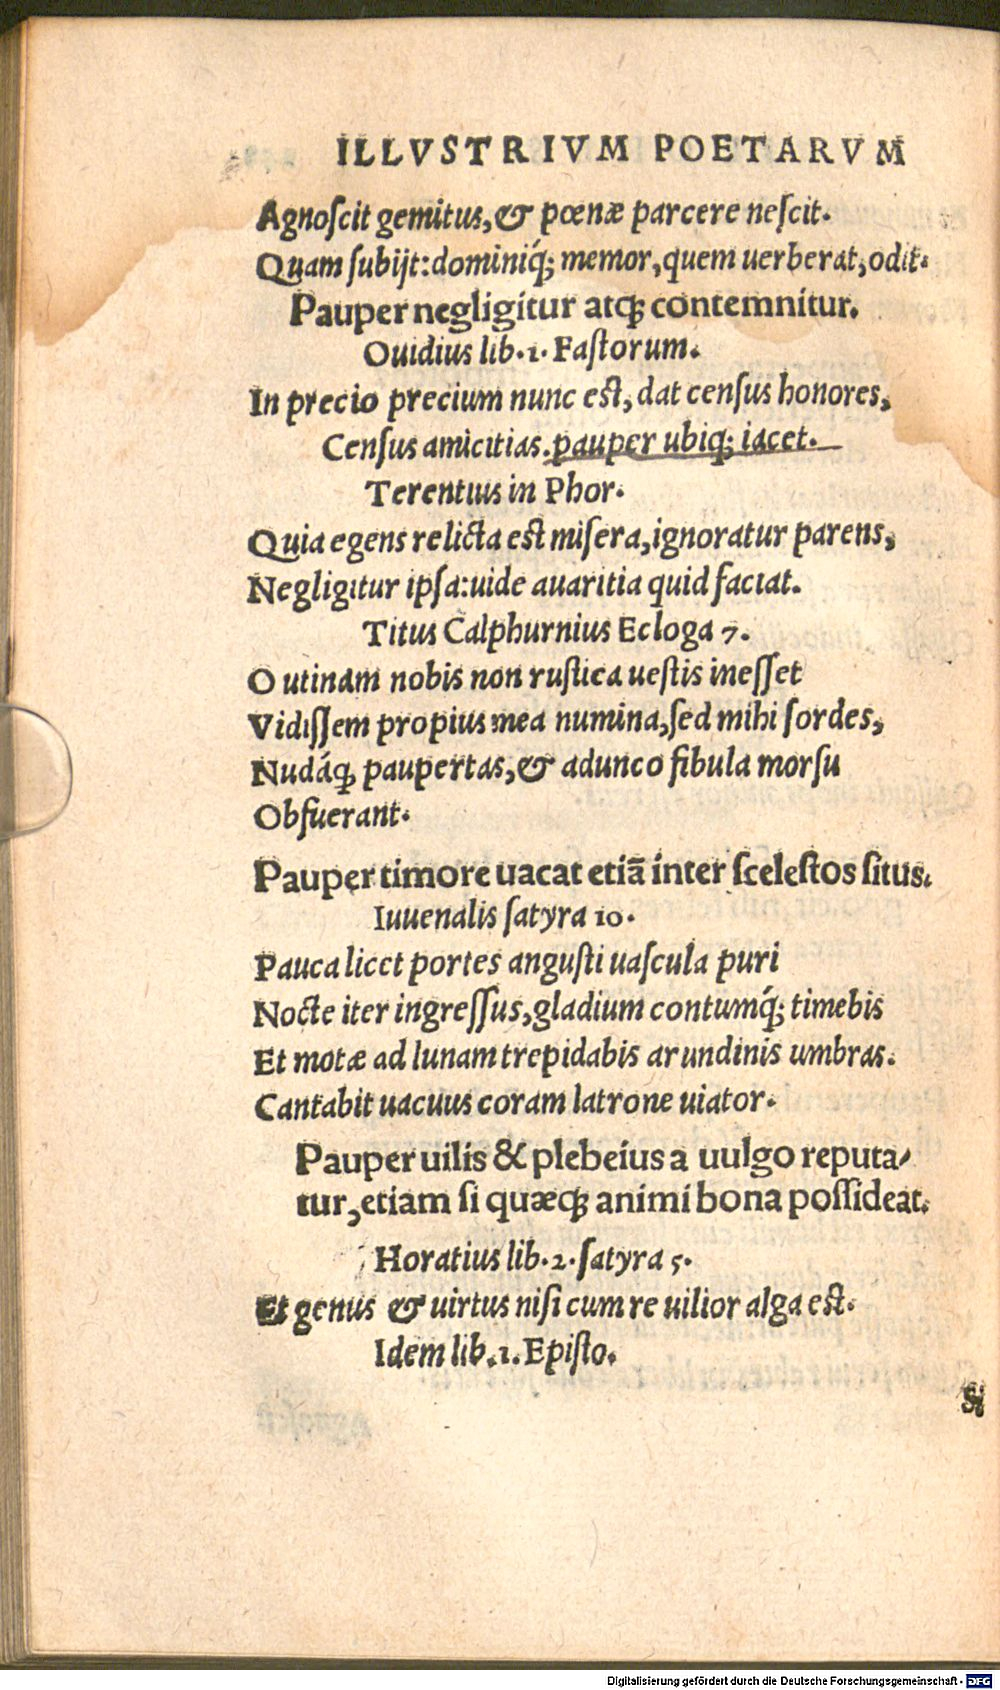 ILLVSTRIVM POETARVM
Agnoſcit gemitus, & pœnæ parcere neſcit.
Quam ſubijt: dominíq; memor, quem uerberat, odit.
Pauper negligitur atq; contemnitur.
Ouidius lib. 1. Faſtorum.
In precio precium nunc eſt, dat cenſus honores,
Cenſus amicitias. pauper ubiq; iacet.
Terentius in Phor.
Quia egens relicta eſt miſera, ignoratur parens,
Negligitur ipſa: uide auaritia quid faciat.
Titus Calphurnius Ecloga 7.
O utinam nobis non ruſtica ueſtis ineſſet
Vidiſſem propius mea numina, ſed mihi ſordes,
Nudáq; paupertas, & adunco fibula morſu
Obfuerant.
Pauper timore uacat etiã inter ſceleſtos ſitus.
Iuuenalis ſatyra 10.
Pauca licet portes anguſti uaſcula puri
Nocte iter ingreſſus, gladium contumq́; timebis
Et motæ ad lunam trepidabis arundinis umbras.
Cantabit uacuus coram latrone uiator.
Pauper uilis & plebeius a uulgo reputa-
tur, etiam ſi quæq; animi bona poſſideat.
Horatius lib. 2. ſatyra 5.
Et genus & uirtus niſi cum re uilior alga eſt.
Idem lib. 1. Epiſto.
Si
Digitalisierung gefördert durch die Deutsche Forschungsgemeinschaft - DFG